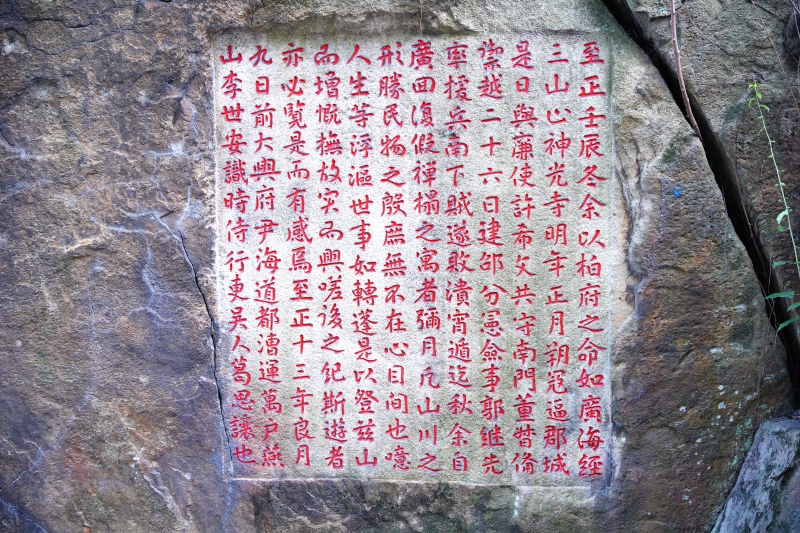 至正壬辰冬余以柏府之命如廣海經
三山止神光寺明年正月朔冦逼郡城
是日與廉使許希文共守南門董督備
禦越二十六日建邵分憲僉事郭継先
率援兵南下賊遂敗潰宵遁迄秋余自
廣囬復假禪榻之寓者彌月凡山川之
形勝民物之殷庶無不在心目間也噫
人生等浮漚世事如轉蓬是以登兹山
而增慨撫故实而興嗟後之纪斯遊者
亦必覽是而有感焉至正十三年良月
九日前大興府尹海道都漕運萬戸燕
山李世安識時侍行吏吳人葛思讓也